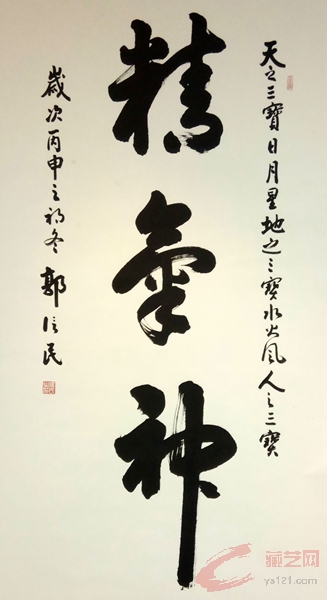 天之三寶日月星地之三寶水火風人之三寶
精氣神
歲次丙申之初冬 郭信民
藏艺网
ys121.com